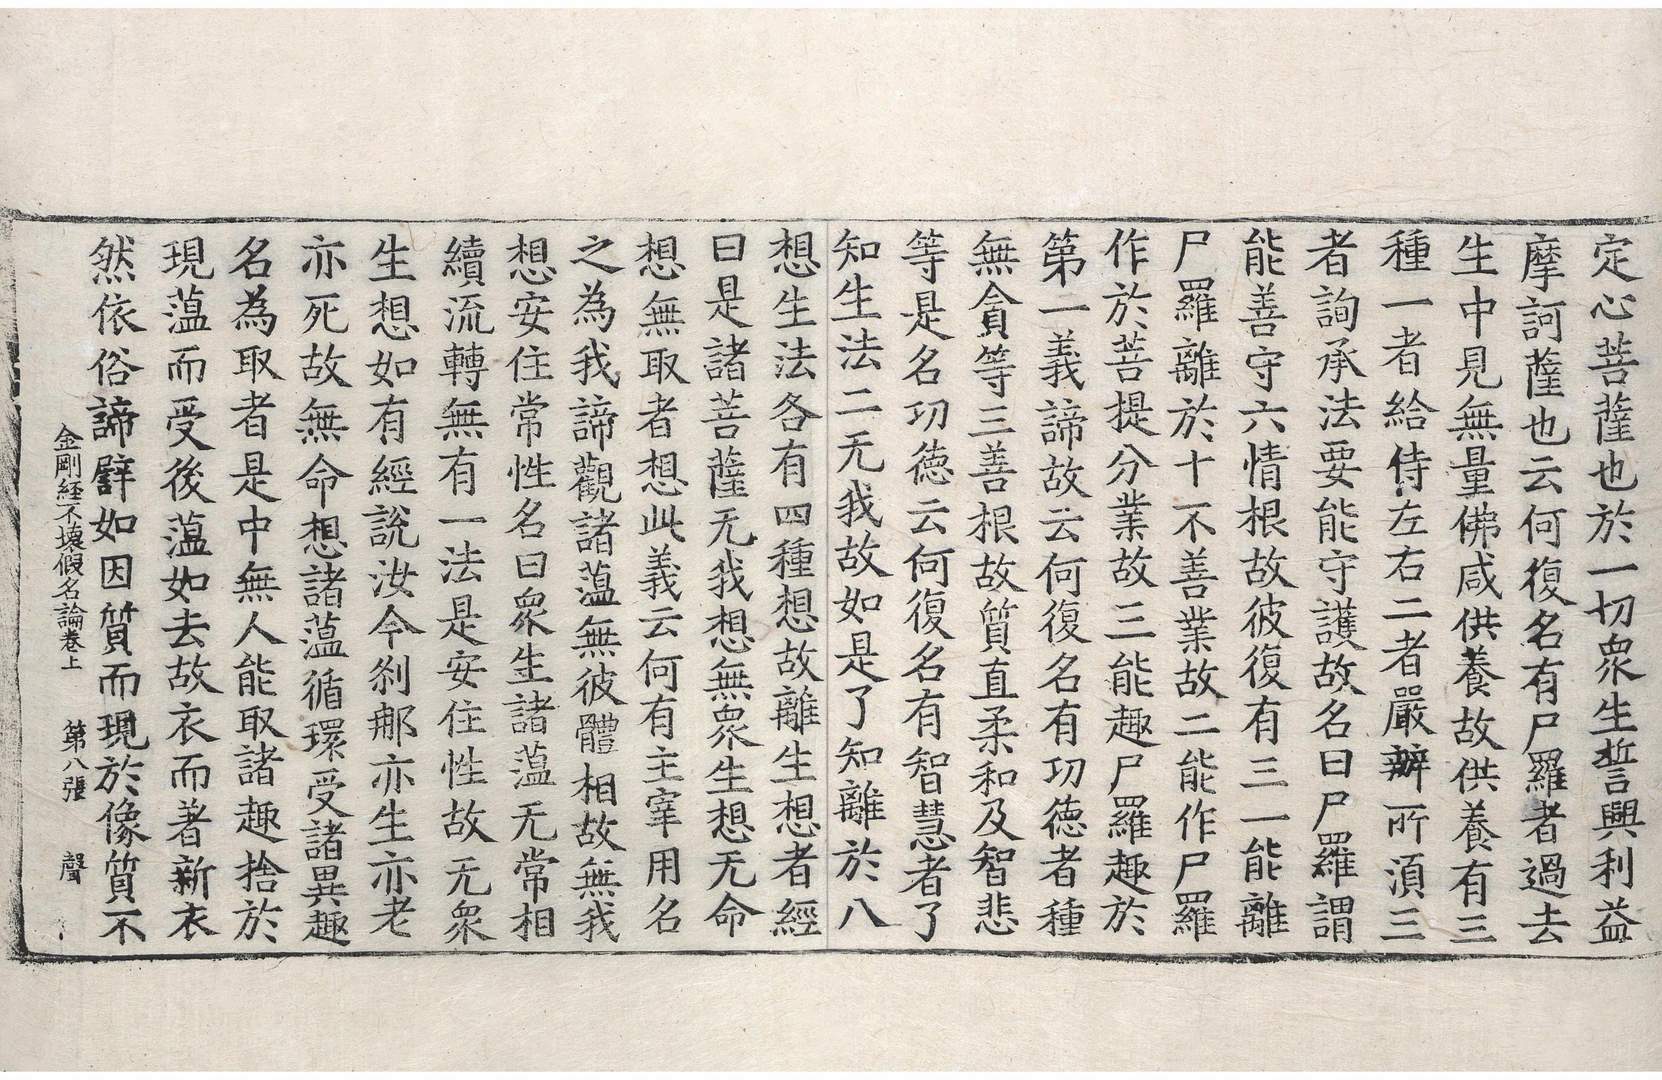 定心菩薩也於一切眾生誓興利益
摩訶薩也云何復名有尸羅者過去
生中見無量佛咸供養故供養有三
種一者給侍左右二者嚴辦所湏三
者詢承法要能守護故名曰尸羅謂
能善守六情根故彼復有三一能離
尸羅離於十不善業故二能作尸羅
作於菩提分業故三能趣尸羅趣於
第一義諦故云何復名有功德者種
無貪等三善根故質直柔和及智悲
等是名功德云何復名有智慧者了
知生法二无我故如是了知離於八
想生法各有四種想故離生想者經
曰是諸菩薩无我想無眾生想无命
想無取者想此義云何有主宰用名
之為我諦觀諸薀無彼體相故無我
想安住常性名曰眾生諸薀无常相
續流轉無有一法是安住性故无眾
生想如有經說汝今刹那亦生亦老
亦死故無命想諸薀循環受諸異趣
名為取者是中無人能取諸趣捨於
現薀而受後薀如去故衣而著新衣
然依俗諦譬如因質而現於像質不
金剛経不壊假名論卷上 第八張 聲